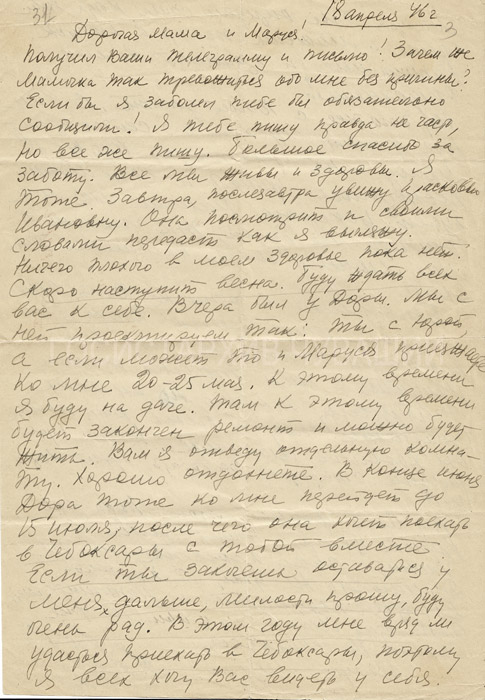 31
18 апреля 46 г
3
Дорогая Мама и Маруся!
Получил ваши телеграмму и письмо! Зачем же
Мамочка так тревожиться обо мне без причины?
Если бы я заболел тебе бы обязательно
сообщили! Я тебе пишу правда не часто,
но все же пишу. Большое спасибо за
заботу. Все мы живы и здоровы. Я
тоже. Завтра, послезавтра увижу
Ивановну. Она посмотрит и своими
словами передаст как я выгляжу.
Ничего плохого в моем здоровье пока нет.
Скоро наступит весна. Буду ждать всех
вас к себе. Вчера был у Доры. Мы с
ней проектируем так: ты с Юрой,
а если может то и Маруся приезжаете
ко мне 20-25 мая. К этому времени
я буду на даче. Там к этому времени
будет закончен ремонт и можно будет
жить. Вам я отведу отдельную комна-
ту. Хорошо отдохнете. В конце июня
Дора тоже ко мне переедет до
15 июля, после чего она хочет поехать
в Чебоксары с тобой вместе.
Если ты захочешь оставаться у
меня дальше, милости прошу, буду
очень рад. В этом году мне вряд ли
удастся приехать в Чебоксары, поэтому
я всех хочу Вас видеть у себя.